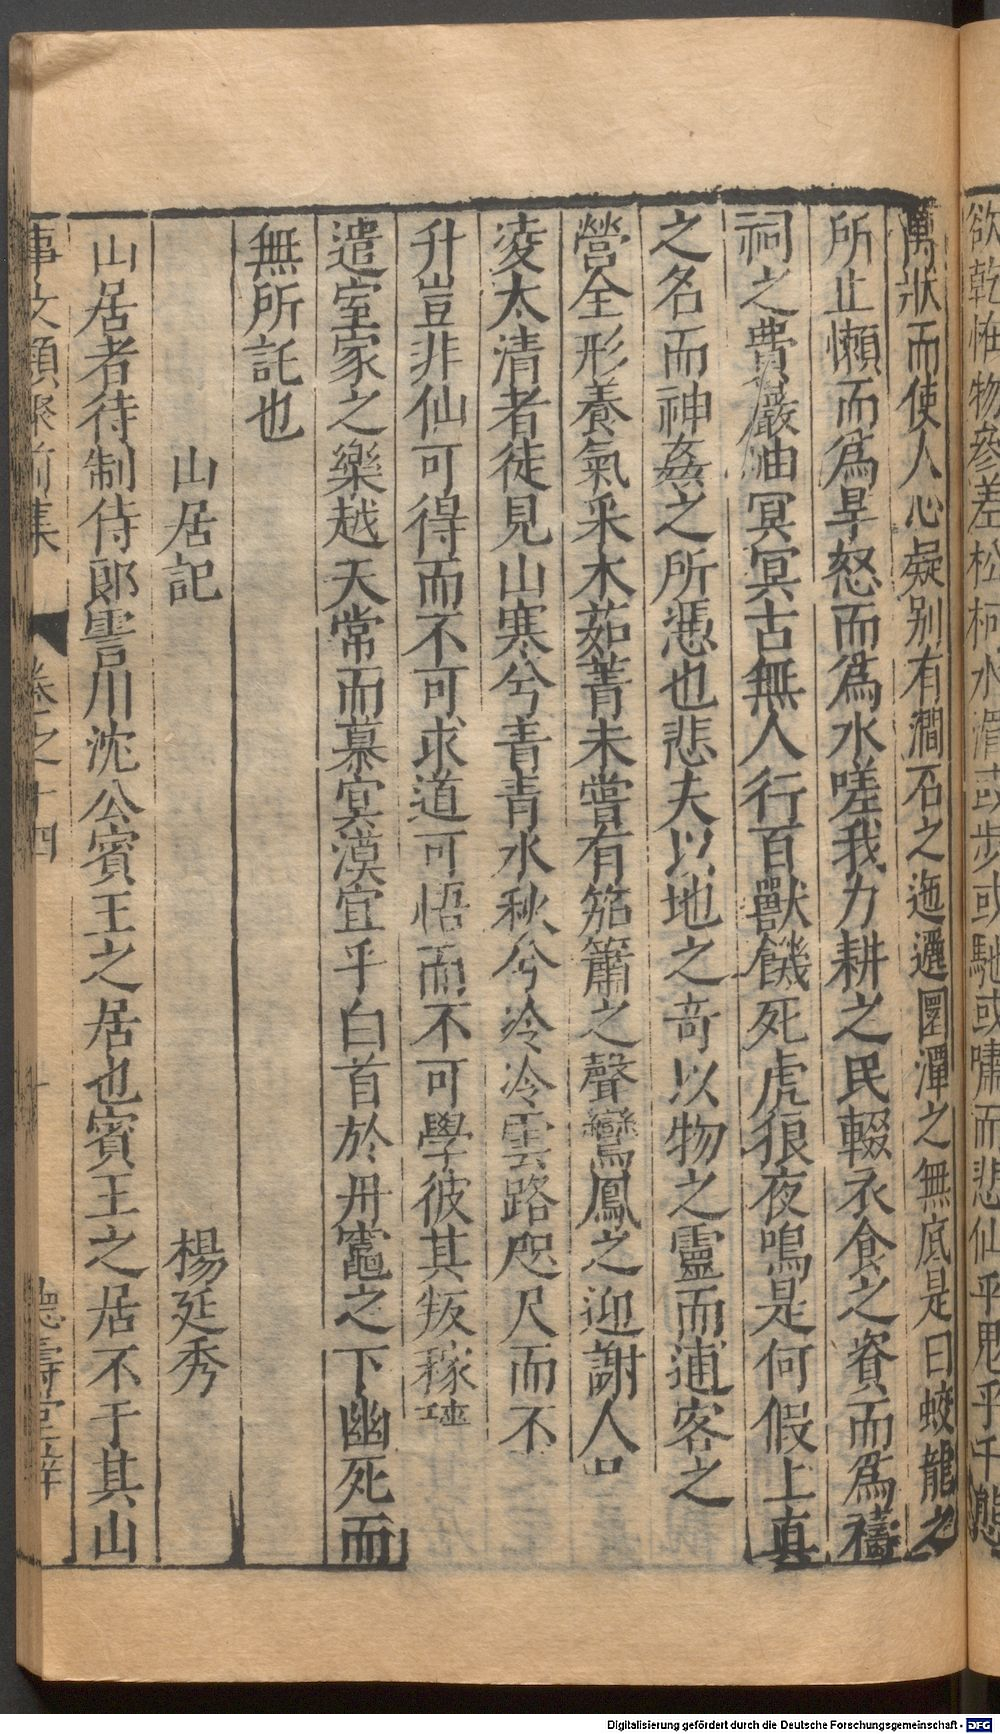 欲乾怪物參差松柯水滑或步或馳或嘯而悲仙乎鬼乎千態
萬狀而使人心疑别有澗石之迤邐圍潭之無底是曰蛟龍之
所止懶而為旱怒而為水嗟我力耕之民輟衣食之資而為禱
祠之費巖油冥冥古無人行百獸饑死虎狼夜鳴是何假上真
之名而神姦之所憑也悲夫以地之竒以物之靈而逋客之
營全形養氣采木茹菁未嘗有笳簫之聲鸞鳳之迎謝人
凌太清者徒見山寒兮青青水秋兮冷冷雲路咫尺而不
升豈非仙可得而不可求道可悟而不可學彼其叛稼
遣室家之樂越天常而慕冥漠宜乎白首於丹竈之下幽死而
無所託也
山居記 楊延秀
山居者待制侍郎霅川沈公賓王之居也賓王之居不于其山
事文類聚前集 卷之十四 十 德壽堂梓
Digitalisierung gefördert durch die Deutsche Forschungsgemeinschaft - DFG